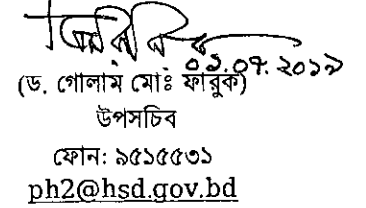 ০১.০৭.২০১৯
(ড. গোলাম মোঃ ফারুক)
উপসচিব
ফোন: ৯৫১৫৫৩১
ph2@hsd.gov.bd